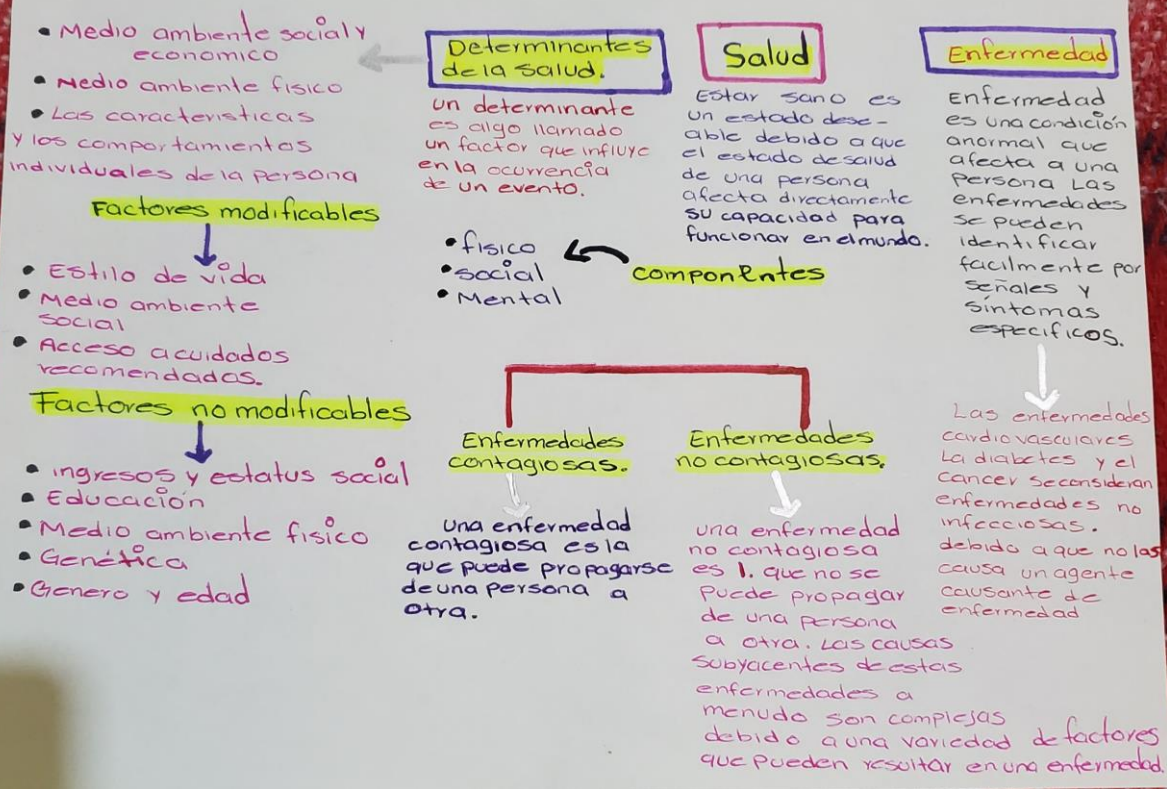 • Medio ambiente social y
economico
• Medio ambiente fisico
• Las caracteristicas
y los comportamientos
individuales de la persona
Factores modificables
• Estilo de vida
• Medio ambiente
social
• Acceso a cuidados
recomendados.
Factores no modificables
• ingresos y estatus social
• Educación
• Medio ambiente fisico
• Genética
• Genero y edad
Determinantes
de la salud.
un determinante
es algo llamado
un factor que influye
en la ocurrencia
de un evento.
Salud
Estar sano es
un estado dese-
able debido a que
el estado de salud
de una persona
afecta directamente
su capacidad para
funcionar en el mundo.
componentes
• fisico
• social
• Mental
Enfermedad
Enfermedad
es una condición
anormal que
afecta a una
persona Las
enfermedades
se pueden
identificar
facilmente por
señales y
síntomas
especificos.
Las enfermedades
cardiovasculares
La diabetes y el
cancer se consideran
enfermedades no
infecciosas.
debido a que no las
causa un agente
causante de
enfermedad
Enfermedades
contagiosas.
una enfermedad
contagiosa es la
que puede propagarse
de una persona a
otra.
Enfermedades
no contagiosas.
una enfermedad
no contagiosa
es 1. que no se
puede propagar
de una persona
a otra. Las causas
subyacentes de estas
enfermedades a
menudo son complejas
debido a una variedad de factores
que pueden resultar en una enfermedad.